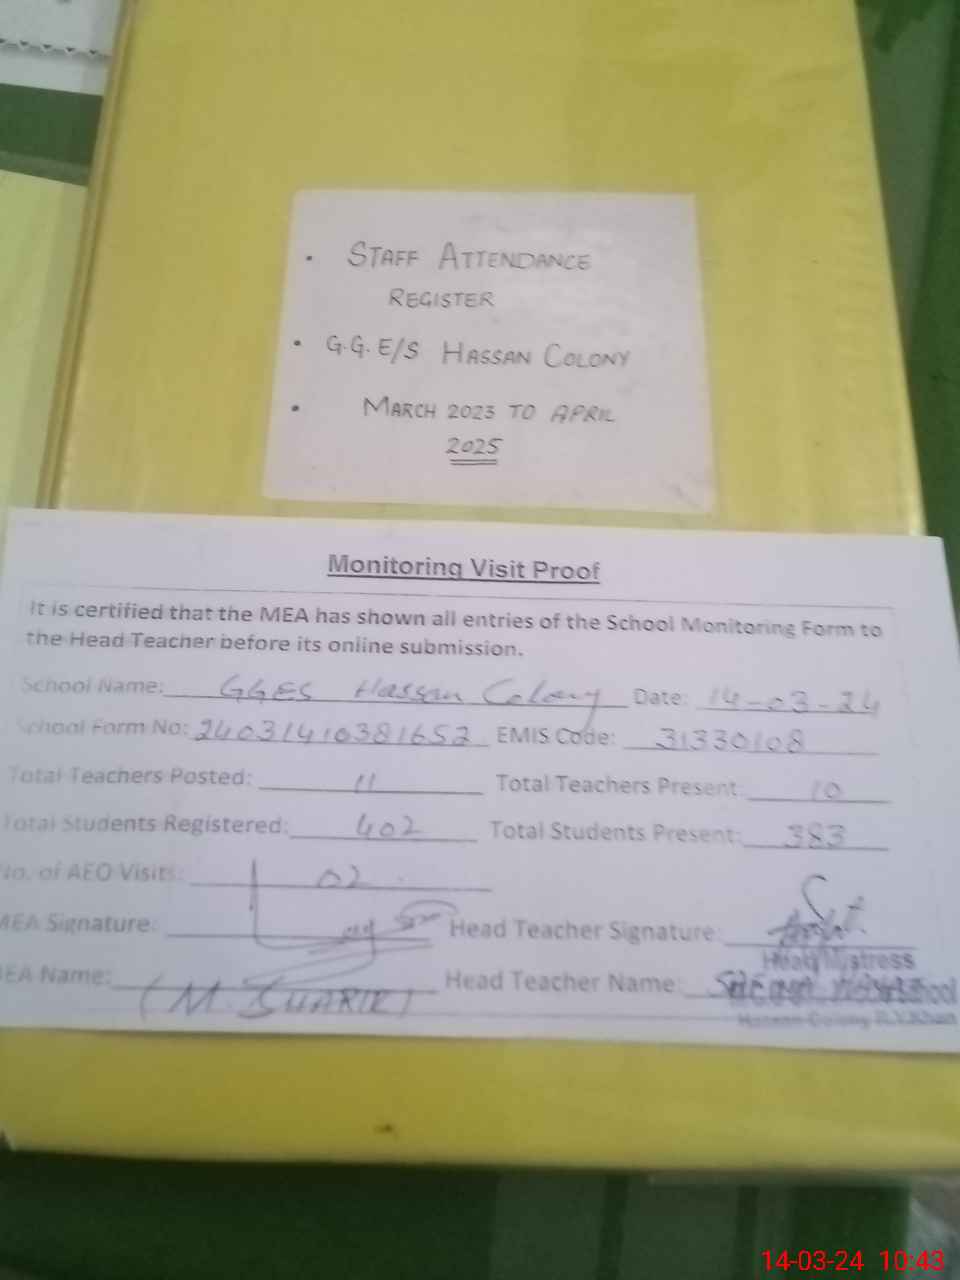 • STAFF ATTENDANCE
REGISTER
• G.G.E/S HASSAN COLONY
• MARCH 2023 TO APRIL
2025
Monitoring Visit Proof
It is certified that the MEA has shown all entries of the School Monitoring Form to
the Head Teacher before its online submission.
School Name: GGES Hassan Colony Date: 14-03-24
School Form No: 24031410381652 EMIS Code: 31330108
Total Teachers Posted: 11 Total Teachers Present: 10
Total Students Registered: 402 Total Students Present: 383
No. of AEO Visits: 02
MEA Signature: Head Teacher Signature:
Head Mistress
MEA Name: (M. SHARIK) Head Teacher Name:
Hassan Colony R.Y.Khan
14-03-24 10:43